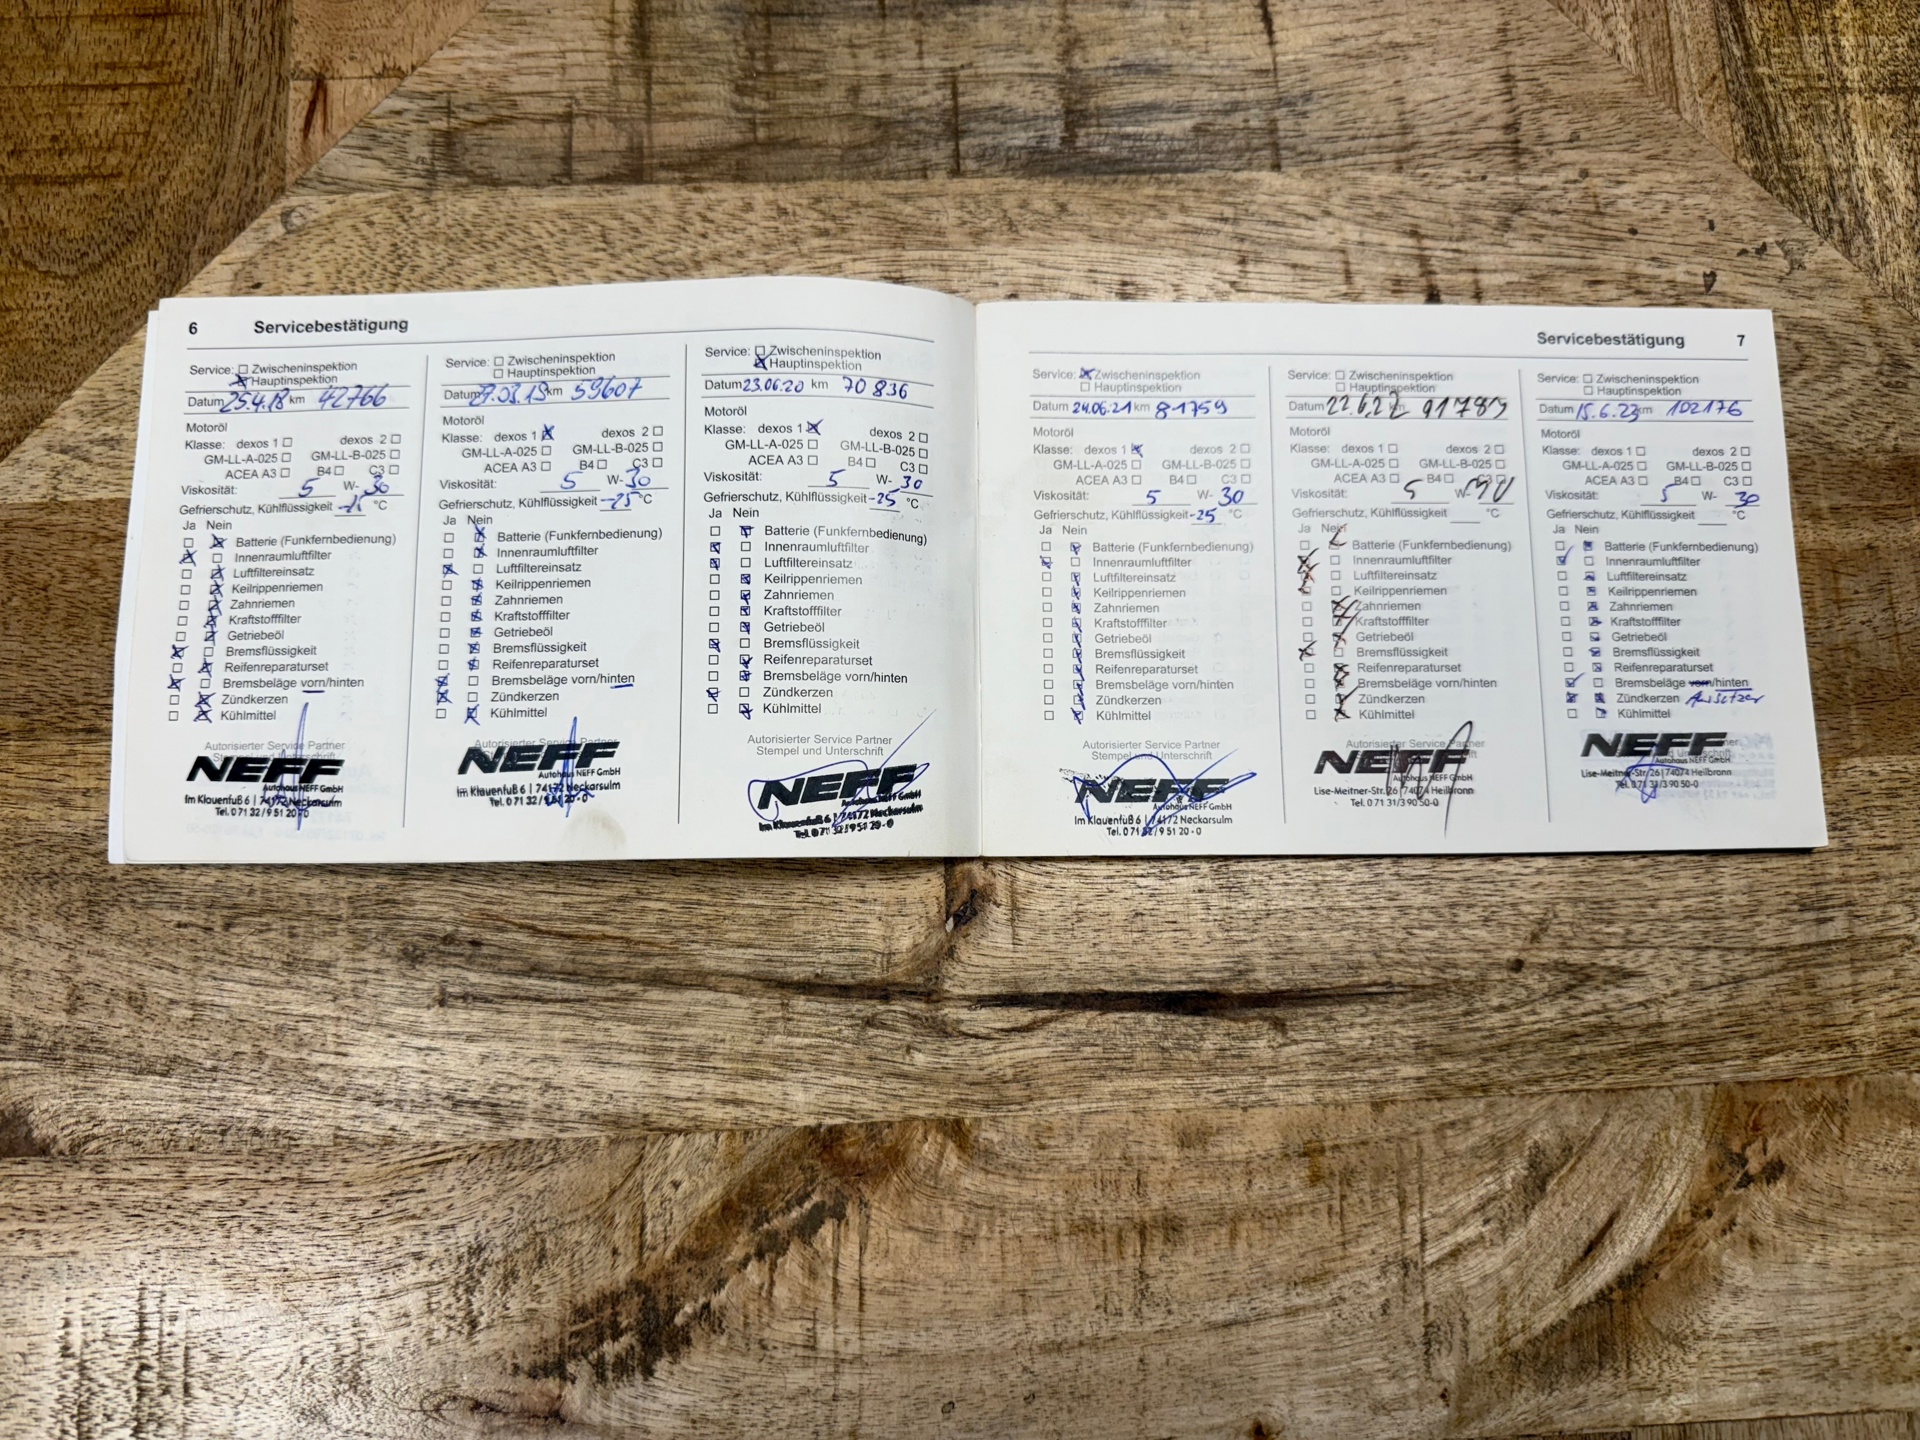 6 Servicebestätigung
Service: Zwischeninspektion
Hauptinspektion
Datum 25.4.18 km 42766
Motoröl
Klasse: dexos 1 dexos 2
GM-LL-A-025 GM-LL-B-025
ACEA A3 B4 C3
Viskosität: 5 W- 30
Gefrierschutz, Kühlflüssigkeit °C
Ja Nein
Batterie (Funkfernbedienung)
Innenraumluftfilter
Luftfiltereinsatz
Keilrippenriemen
Zahnriemen
Kraftstofffilter
Getriebeöl
Bremsflüssigkeit
Reifenreparaturset
Bremsbeläge vorn/hinten
Zündkerzen
Kühlmittel
Autorisierter Service Partner
Stempel und Unterschrift
NEFF
Autohaus NEFF GmbH
Im Klauenfuß 6 | 74172 Neckarsulm
Tel. 0 71 32 / 9 51 20 - 0
Service: Zwischeninspektion
Hauptinspektion
Datum km 59607
Motoröl
Klasse: dexos 1 dexos 2
GM-LL-A-025 GM-LL-B-025
ACEA A3 B4 C3
Viskosität: 5 W- 30
Gefrierschutz, Kühlflüssigkeit -25 °C
Ja Nein
Batterie (Funkfernbedienung)
Innenraumluftfilter
Luftfiltereinsatz
Keilrippenriemen
Zahnriemen
Kraftstofffilter
Getriebeöl
Bremsflüssigkeit
Reifenreparaturset
Bremsbeläge vorn/hinten
Zündkerzen
Kühlmittel
Autorisierter Service Partner
NEFF
Autohaus NEFF GmbH
Im Klauenfuß 6 | 74172 Neckarsulm
Tel. 0 71 32 / 9 51 20 - 0
Service: Zwischeninspektion
Hauptinspektion
Datum 23.06.20 km 70 836
Motoröl
Klasse: dexos 1 dexos 2
GM-LL-A-025 GM-LL-B-025
ACEA A3 B4 C3
Viskosität: 5 W- 30
Gefrierschutz, Kühlflüssigkeit -25 °C
Ja Nein
Batterie (Funkfernbedienung)
Innenraumluftfilter
Luftfiltereinsatz
Keilrippenriemen
Zahnriemen
Kraftstofffilter
Getriebeöl
Bremsflüssigkeit
Reifenreparaturset
Bremsbeläge vorn/hinten
Zündkerzen
Kühlmittel
Autorisierter Service Partner
Stempel und Unterschrift
NEFF
Autohaus NEFF GmbH
Im Klauenfuß 6 | 74172 Neckarsulm
Tel. 0 71 32 / 9 51 20 - 0
Servicebestätigung 7
Service: Zwischeninspektion
Hauptinspektion
Datum 24.06.21 km 81759
Motoröl
Klasse: dexos 1 dexos 2
GM-LL-A-025 GM-LL-B-025
ACEA A3 B4 C3
Viskosität: 5 W- 30
Gefrierschutz, Kühlflüssigkeit -25 °C
Ja Nein
Batterie (Funkfernbedienung)
Innenraumluftfilter
Luftfiltereinsatz
Keilrippenriemen
Zahnriemen
Kraftstofffilter
Getriebeöl
Bremsflüssigkeit
Reifenreparaturset
Bremsbeläge vorn/hinten
Zündkerzen
Kühlmittel
Autorisierter Service Partner
Stempel und Unterschrift
NEFF
Autohaus NEFF GmbH
Im Klauenfuß 6 | 74172 Neckarsulm
Tel. 0 71 32 / 9 51 20 - 0
Service: Zwischeninspektion
Hauptinspektion
Datum 22.6.22 km 91789
Motoröl
Klasse: dexos 1 dexos 2
GM-LL-A-025 GM-LL-B-025
ACEA A3 B4 C3
Viskosität: 5 W- 30
Gefrierschutz, Kühlflüssigkeit °C
Ja Nein
Batterie (Funkfernbedienung)
Innenraumluftfilter
Luftfiltereinsatz
Keilrippenriemen
Zahnriemen
Kraftstofffilter
Getriebeöl
Bremsflüssigkeit
Reifenreparaturset
Bremsbeläge vorn/hinten
Zündkerzen
Kühlmittel
Autorisierter Service Partner
NEFF
Autohaus NEFF GmbH
Lise-Meitner-Str. 26 | 74074 Heilbronn
Tel. 0 71 31/3 90 50-0
Service: Zwischeninspektion
Hauptinspektion
Datum 15.6.23 km 102176
Motoröl
Klasse: dexos 1 dexos 2
GM-LL-A-025 GM-LL-B-025
ACEA A3 B4 C3
Viskosität: 5 W- 30
Gefrierschutz, Kühlflüssigkeit °C
Ja Nein
Batterie (Funkfernbedienung)
Innenraumluftfilter
Luftfiltereinsatz
Keilrippenriemen
Zahnriemen
Kraftstofffilter
Getriebeöl
Bremsflüssigkeit
Reifenreparaturset
Bremsbeläge vorn/hinten
Zündkerzen
Kühlmittel
NEFF
Autohaus NEFF GmbH
Lise-Meitner-Str. 26 | 74074 Heilbronn
Tel. 0 71 31/3 90 50-0